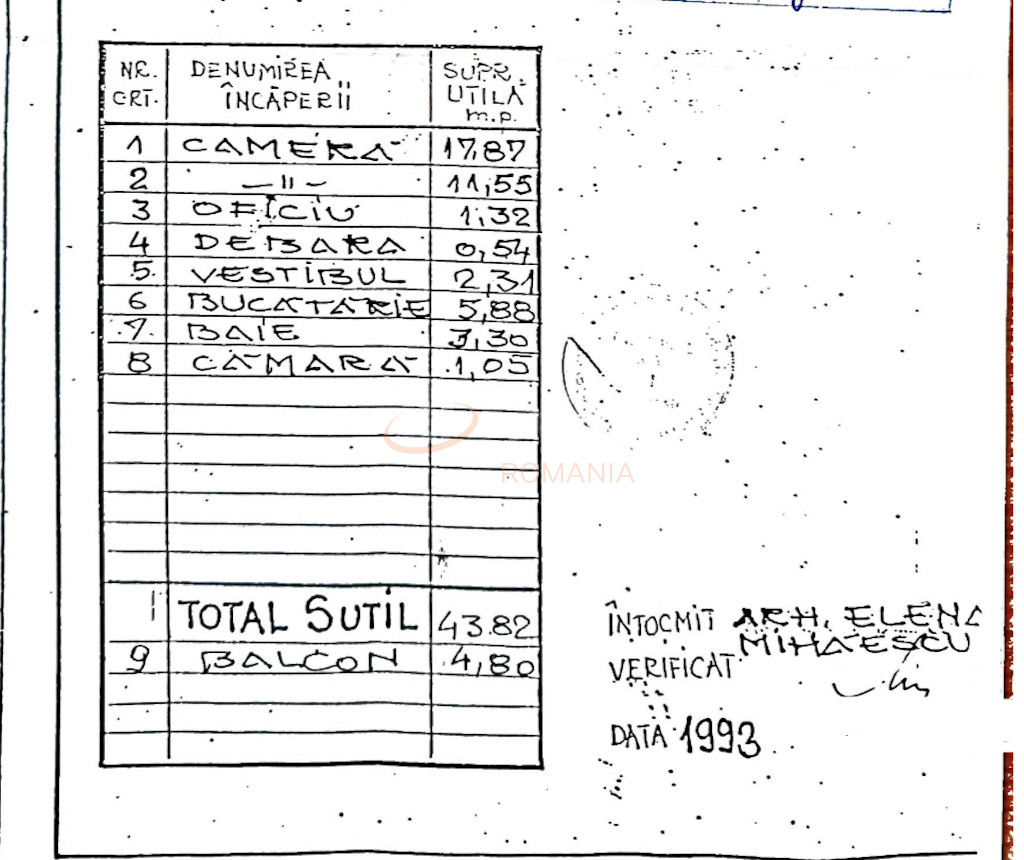 NR. CRT. DENUMIREA ÎNCĂPERII SUPR. UTILĂ m.p.
1 CAMERA 17,87
2 —"— 11,55
3 OFICIU 1,32
4 DEBARA 0,54
5. VESTIBUL 2,31
6 BUCATARIE 5,88
7. BAIE 3,30
8 CAMARA 1,05
TOTAL SUTIL 43.82
9 BALCON 4,80
ÎNTOCMIT ARH. ELENA
MIHAESCU
VERIFICAT
DATA 1993
ROMANIA